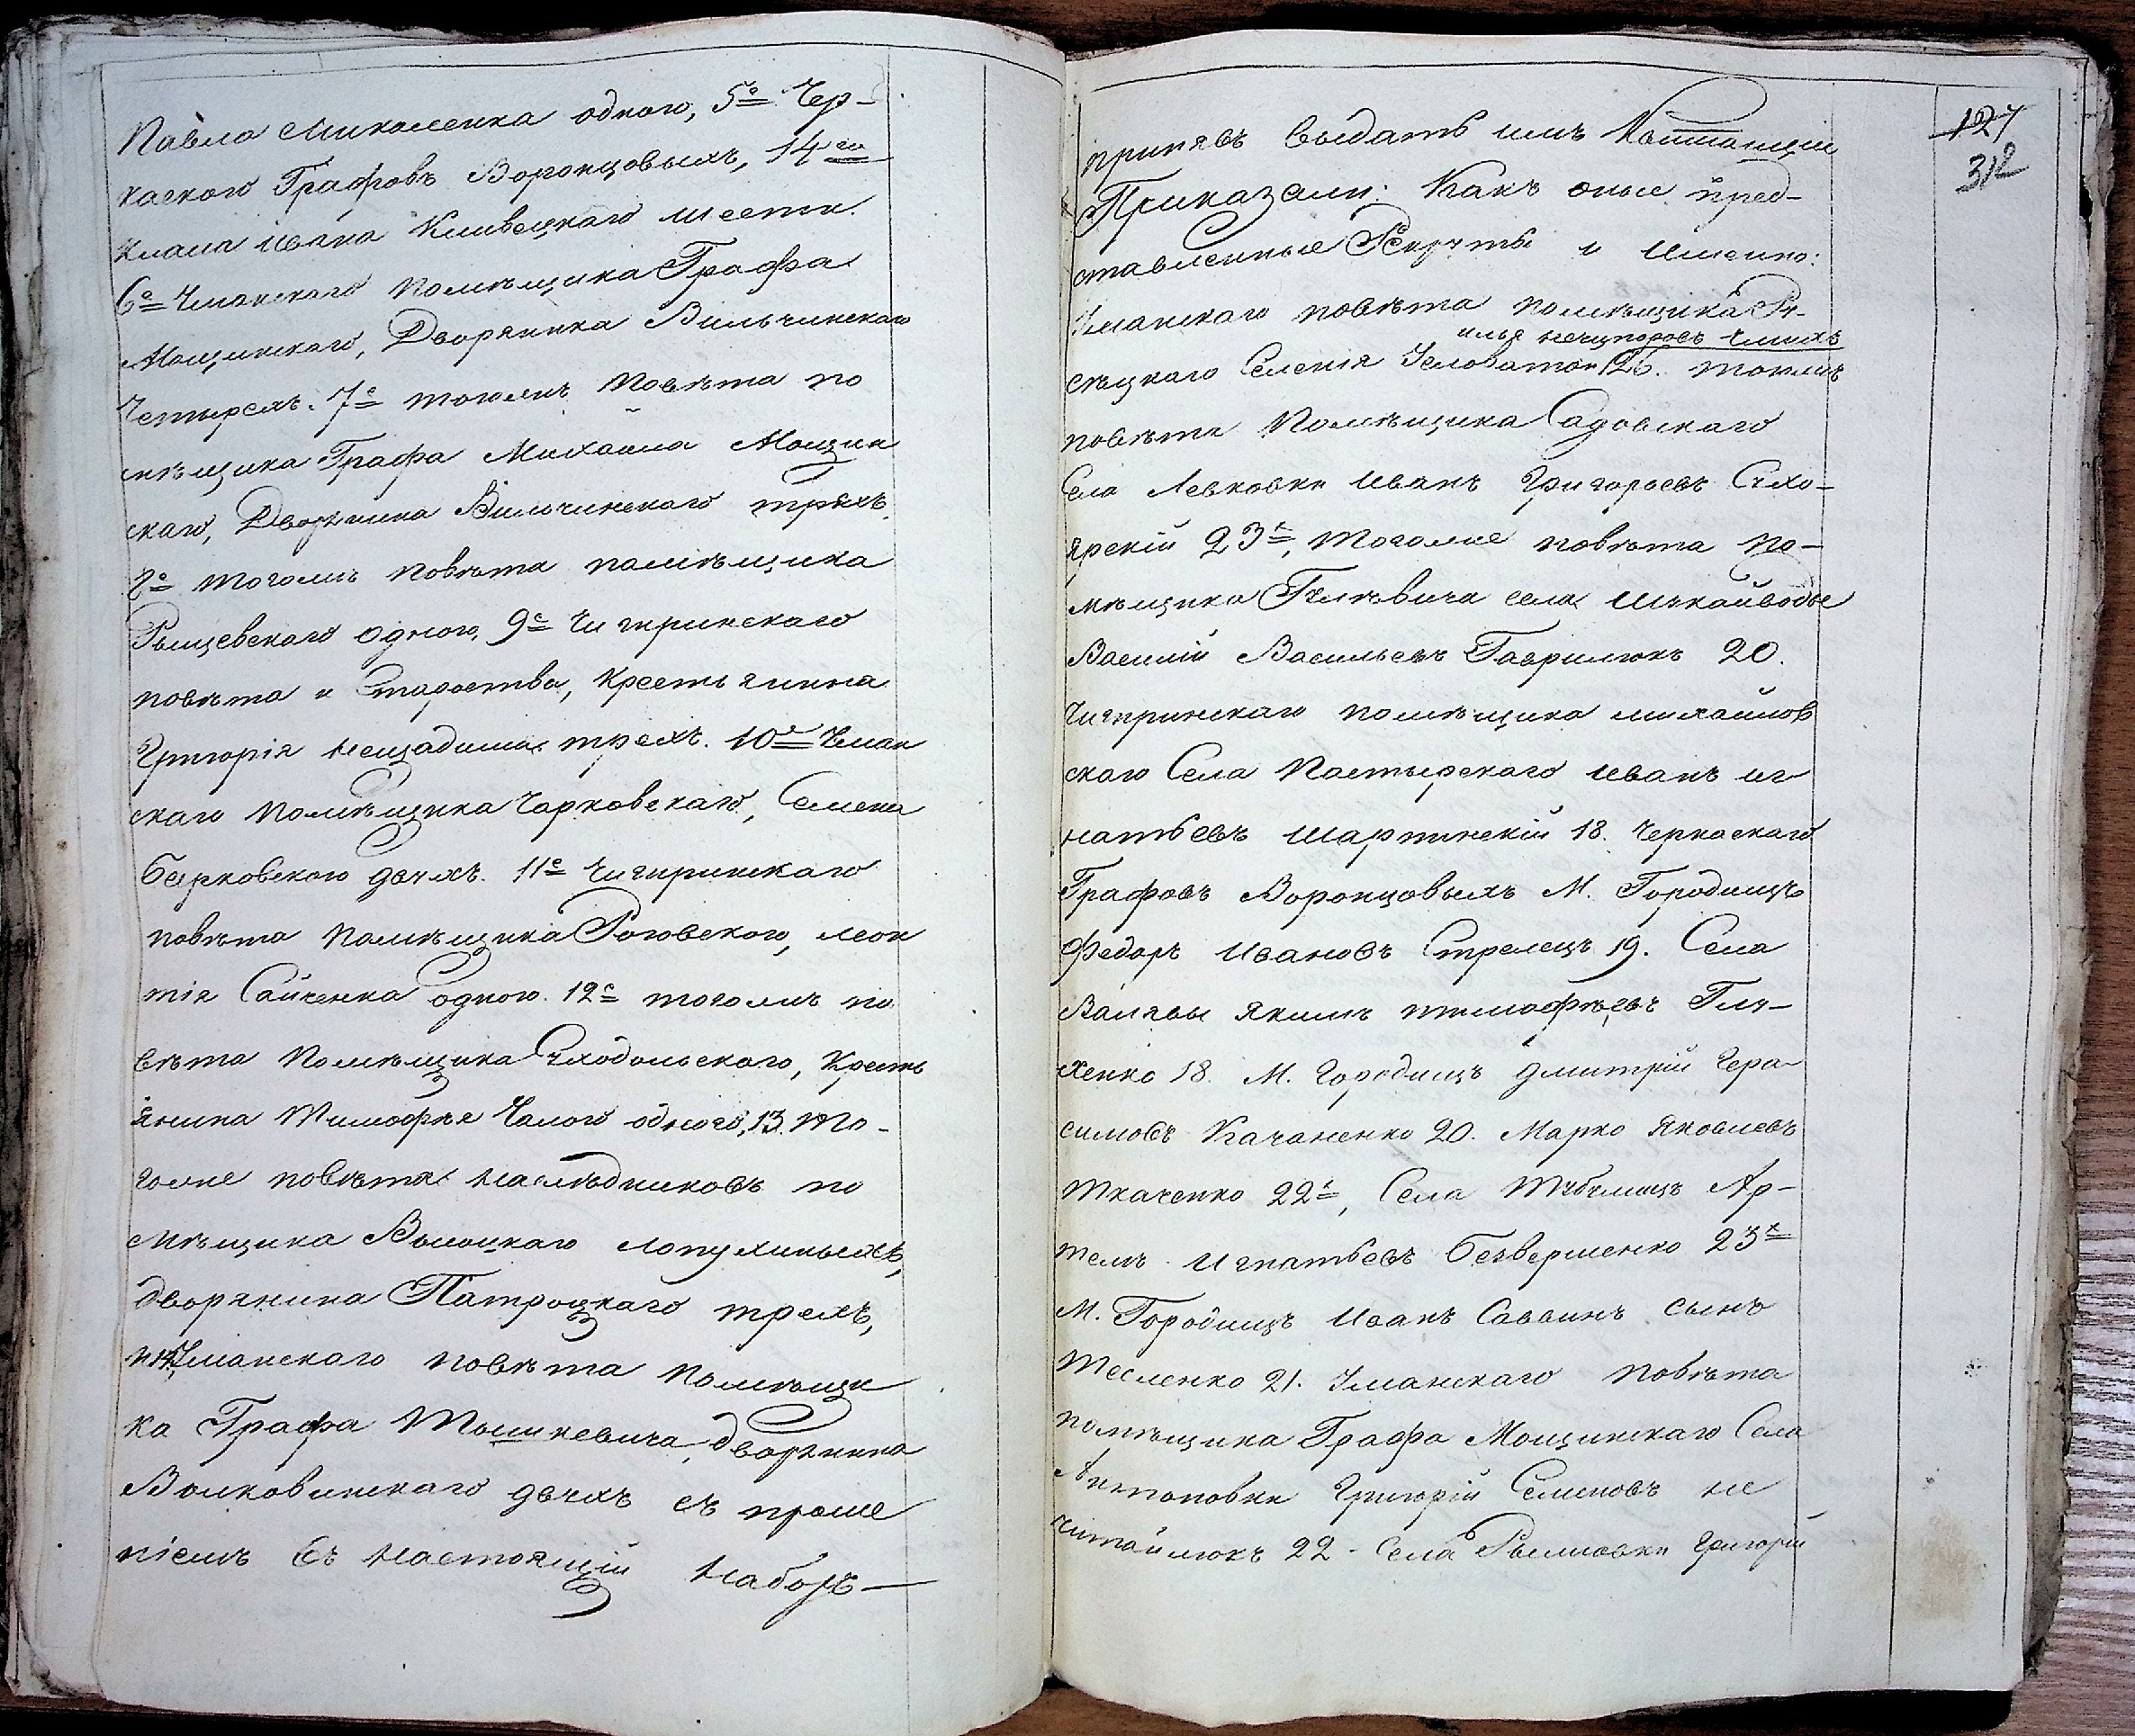 Павла Миколенка одного, 5е Чер-
каского Графовъ Воронцовыхъ, 14го
класа Ивана Кливецкаго шести.
6е Уманскаго помѣщика Графа
Мощинскаго, Дворянина Вильчинскаго
четырехъ. 7е тогожъ повѣта по
мѣщика Графа Михаила Мощин
скаго, Дворянина Вильчинскаго трехъ.
8е тогожъ повѣта помѣщика
Рыщевскаго одного, 9е Чигиринскаго
повѣта и Староства, крестьянина
Григорія Нещадима трехъ. 10е Уман
скаго помѣщика Чарковскаго, Семена
Барковского двухъ. 11е Чигиринскаго
повѣта помѣщика Роговского, Леон
тія Сайченка одного. 12е тогожъ по
вѣта помѣщика Суходольского, крестъ
янина Тимофѣя Чалого одного, 13. То-
гоже повѣта наслѣдниковъ по
мѣщика Высоцкаго Лопухиныхъ,
дворянина Патроцкаго трехъ,
и 14, Уманскаго повѣта помѣщи
ка Графа Тышкевича, дворянина
Волковинскаго двухъ съ проше
ніемъ въ настоящій наборъ—
127
312
принявъ выдать имъ Квитанціи
Приказали: Какъ оные пред-
ставленные Рекруты и именно:
Уманскаго повѣта помѣщика
илья нечипоровъ
сѣцкаго Селенія тогожъ
повѣта Помѣщика Садовскаго
Села Левковки Иванъ Григорьевъ Сухо-
ярскій 23х, тогоже повѣта по-
мѣщика села Шукайводы
Василій Васильевъ Гаврилюкъ 20.
Чигиринскаго помѣщика Михайлов
скаго Села Пастырского Иванъ иг
натьевъ Шарпинскій 18. Черкаскаго
Графовъ Воронцовыхъ М. Городищъ
Федоръ Ивановъ Стрелецъ 19. Села
Валявы Якимъ тимофѣевъ Глу-
хенко 18. М. Городищъ дмитрій Гера-
симовъ Качаненко 20. Марко Яковлевъ
Ткаченко 22х, Села Ар-
темъ Игнатьевъ Безвершенко 23х
М. Городищъ Иванъ Саввинъ сынъ
Тесленко 21. Уманскаго повѣта
помѣщика Графа Мощинскаго Села
Антоновки Григорій Семеновъ не
читайлюкъ 22 - Села Рыжовки Григорій